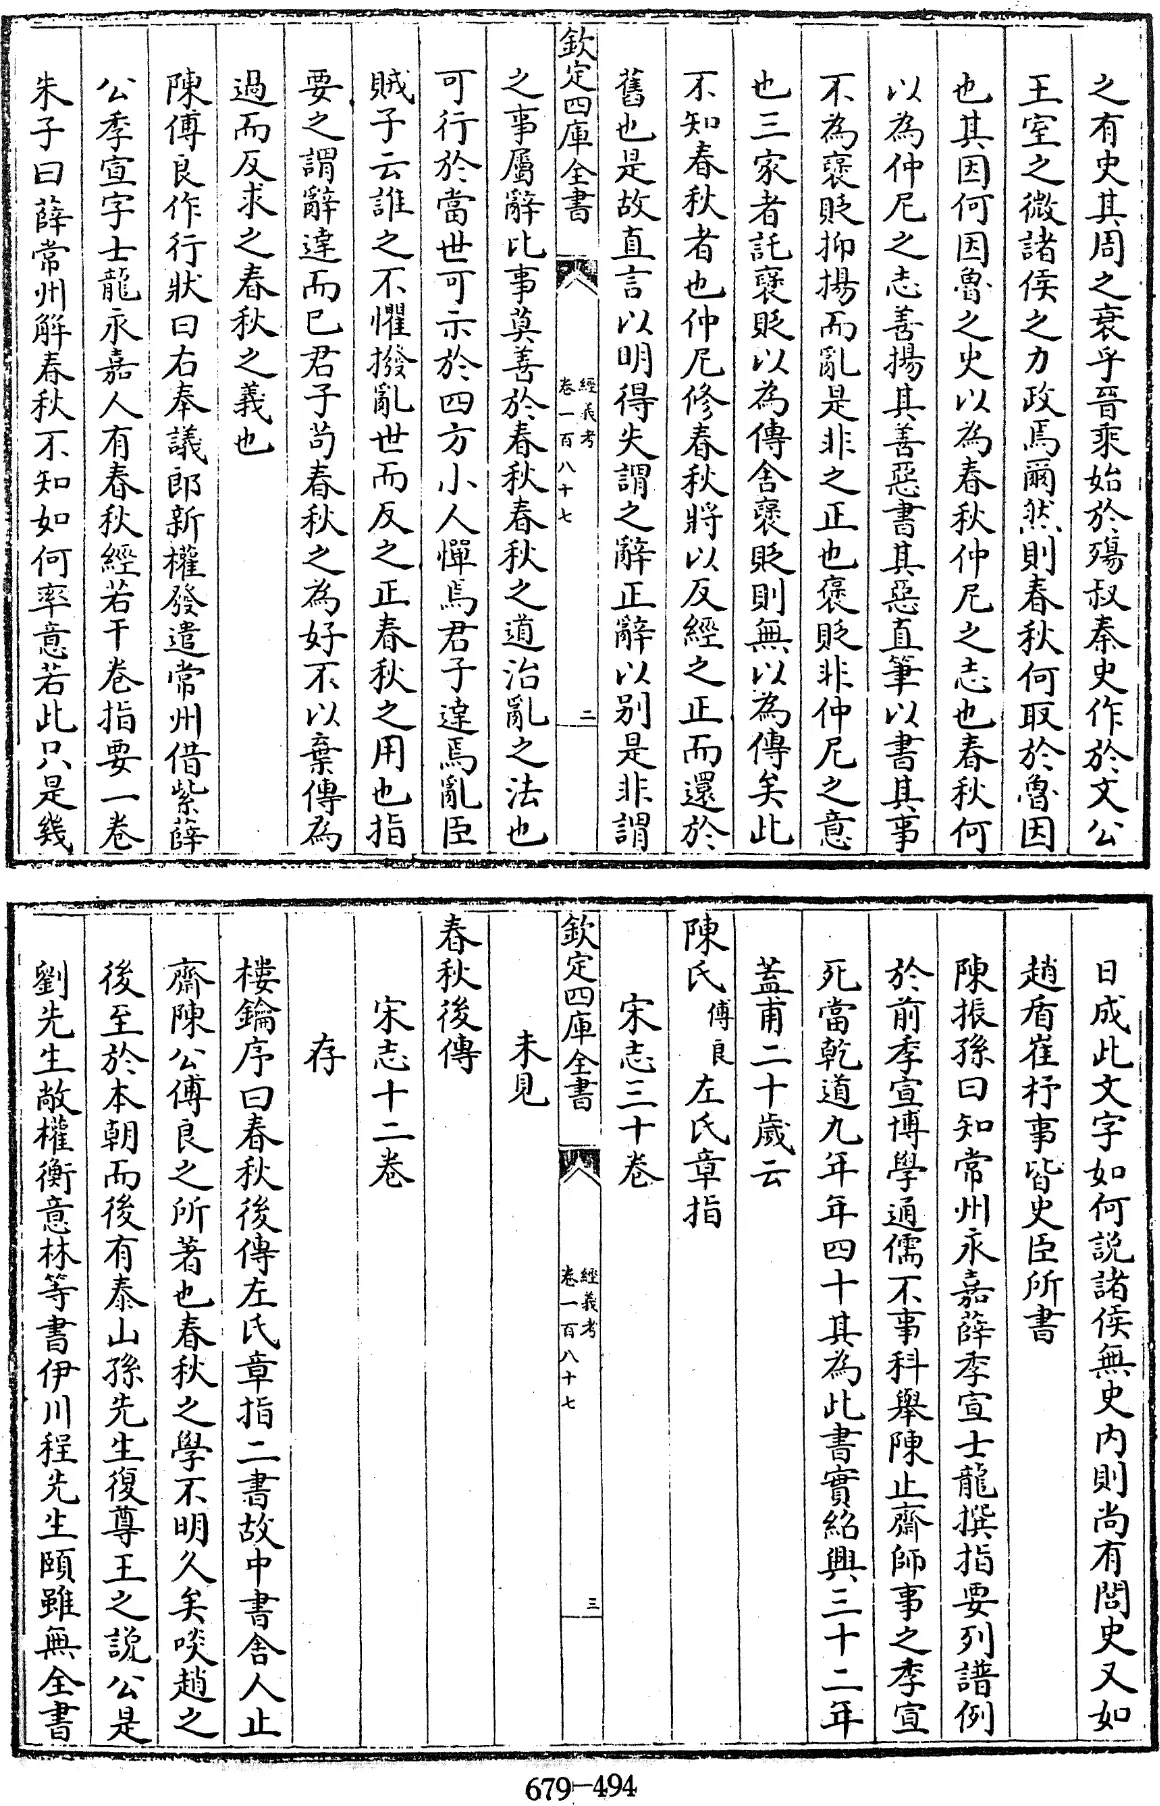 之有史其周之衰乎晉乘始於殤叔秦史作於文公
王室之微諸侯之力政焉爾然則春秋何取於魯因
也其因何因魯之史以為春秋仲尼之志也春秋何
以為仲尼之志善揚其善惡書其惡直筆以書其事
不為褒貶抑揚而亂是非之正也褒貶非仲尼之意
也三家者託褒貶以為傳舍褒貶則無以為傳矣此
不知春秋者也仲尼修春秋將以反經之正而還於
舊也是故直言以明得失謂之辭正辭以别是非謂
欽定四庫全書
經義考
卷一百八十七
二
之事屬辭比事莫善於春秋春秋之道治亂之法也
可行於當世可示於四方小人憚焉君子達焉亂臣
賊子云誰之不懼撥亂世而反之正春秋之用也指
要之謂辭達而已君子茍春秋之為好不以棄傳為
過而反求之春秋之義也
陳傅良作行狀曰右奉議郎新權發遣常州借紫薛
公季宣字士龍永嘉人有春秋經若干卷指要一卷
朱子曰薛常州解春秋不知如何率意若此只是幾
日成此文字如何説諸侯無史内則尚有閭史又如
趙盾崔杼事皆史臣所書
陳振孫曰知常州永嘉薛季宣士龍撰指要列譜例
於前季宣博學通儒不事科舉陳止齋師事之季宣
死當乾道九年年四十其為此書實紹興三十二年
蓋甫二十歲云
陳氏傅良左氏章指
宋志三十卷
欽定四庫全書
經義考
卷一百八十七
三
未見
春秋後傳
宋志十二卷
存
樓鑰序曰春秋後傳左氏章指二書故中書舍人止
齋陳公傅良之所著也春秋之學不明久矣啖趙之
後至於本朝而後有泰山孫先生復尊王之説公是
劉先生敞權衡意林等書伊川程先生頤雖無全書
679-494